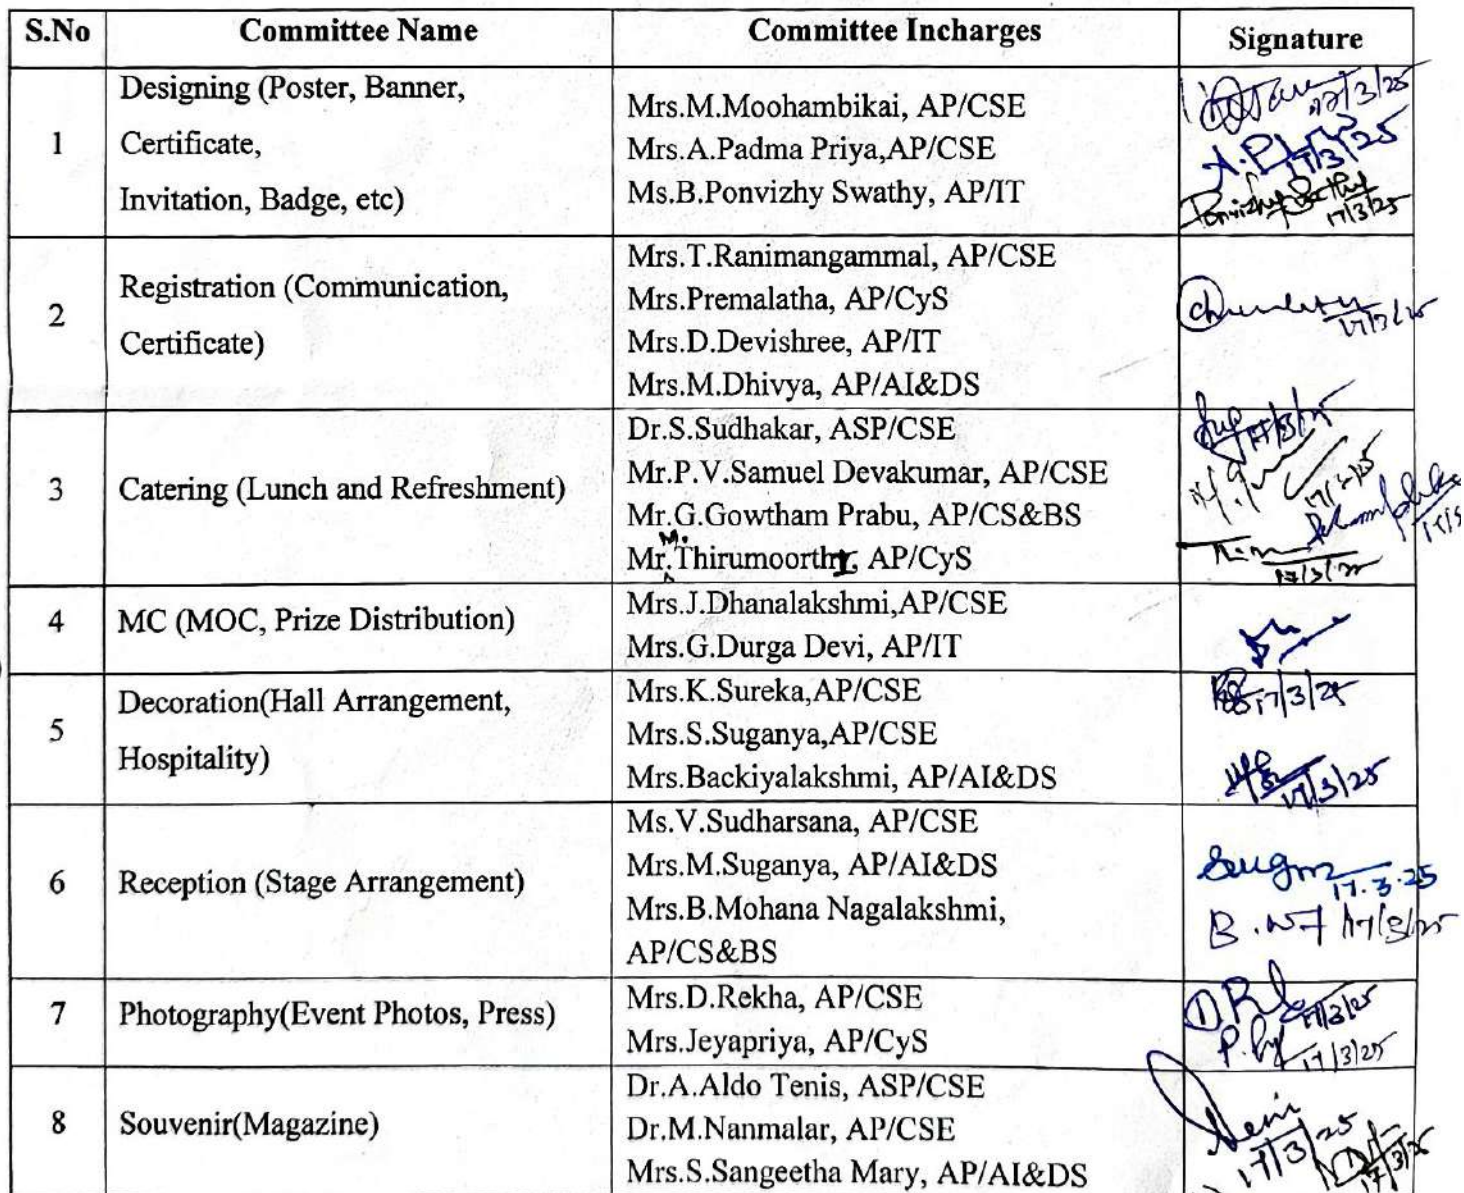 S.No Committee Name Committee Incharges Signature
1
Designing (Poster, Banner,
Certificate,
Invitation, Badge, etc)
Mrs.M.Moohambikai, AP/CSE
Mrs.A.Padma Priya,AP/CSE
Ms.B.Ponvizhy Swathy, AP/IT
17/3/25
17/3/25
Ponvizhy Swathy
17/3/25
2
Registration (Communication,
Certificate)
Mrs.T.Ranimangammal, AP/CSE
Mrs.Premalatha, AP/CyS
Mrs.D.Devishree, AP/IT
Mrs.M.Dhivya, AP/AI&DS
17/3/25
3
Catering (Lunch and Refreshment)
Dr.S.Sudhakar, ASP/CSE
Mr.P.V.Samuel Devakumar, AP/CSE
Mr.G.Gowtham Prabu, AP/CS&BS
Mr.M.Thirumoorthy, AP/CyS
17/3/25
17/3/25
17/3/25
4
MC (MOC, Prize Distribution)
Mrs.J.Dhanalakshmi,AP/CSE
Mrs.G.Durga Devi, AP/IT
5
Decoration(Hall Arrangement,
Hospitality)
Mrs.K.Sureka,AP/CSE
Mrs.S.Suganya,AP/CSE
Mrs.Backiyalakshmi, AP/AI&DS
17/3/25
17/3/25
6
Reception (Stage Arrangement)
Ms.V.Sudharsana, AP/CSE
Mrs.M.Suganya, AP/AI&DS
Mrs.B.Mohana Nagalakshmi,
AP/CS&BS
17.3.25
17/3/25
7
Photography(Event Photos, Press)
Mrs.D.Rekha, AP/CSE
Mrs.Jeyapriya, AP/CyS
17/3/25
17/3/25
8
Souvenir(Magazine)
Dr.A.Aldo Tenis, ASP/CSE
Dr.M.Nanmalar, AP/CSE
Mrs.S.Sangeetha Mary, AP/AI&DS
17/3/25
17/3/25